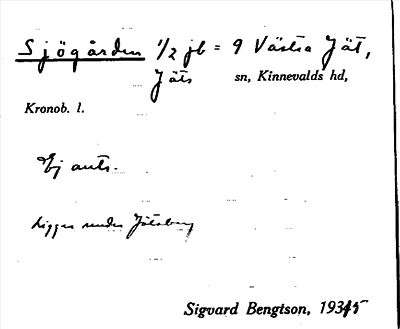 Sjögården 1/2 jb = 9 Västra Jät,
Jäts sn, Kinnevalds hd,
Kronob. l.
Ej ants.
Ligger under Jätsberg
Sigvard Bengtson, 1935